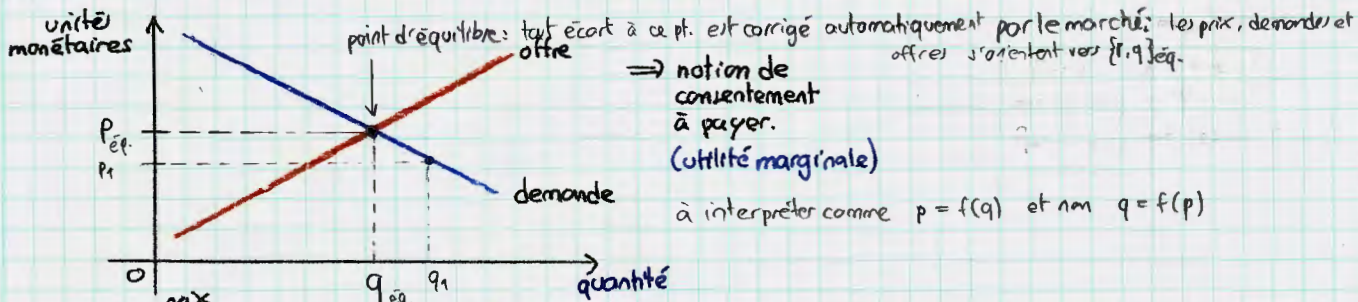 unités
monétaires
point d'équilibre: tout écart à ce pt. est corrigé automatiquement par le marché: les prix, demandes et
offres s'orientent vers {p,q}éq.
offre
⇒ notion de
consentement
à payer.
(utilité marginale)
Péq.
P1
demande
à interpréter comme p = f(q) et non q = f(p)
0
qéq
q1
quantité